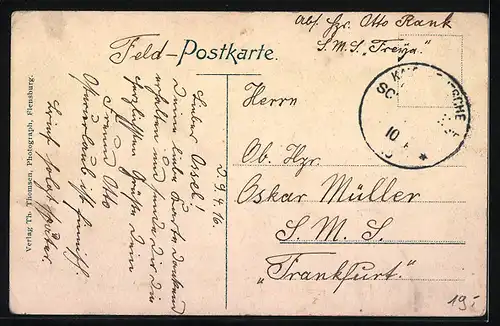 Abs. Hzr. Otto Rank
S.M.S. „Freya."
Feld-Postkarte.
KAIS. DEUTSCHE
10
Herrn
Ob. Hzr.
Oskar Müller
S. M. S.
„Frankfurt."
D. 9.4.16.
Lieber Ossel!
Deine liebe Karte dankend
erhalten und sende Dir die
herzlichsten Grüße Dein
Freund Otto
Osterurlaub ist
Brief folgt später.
Verlag Th. Thomsen, Photograph, Flensburg.
19.-